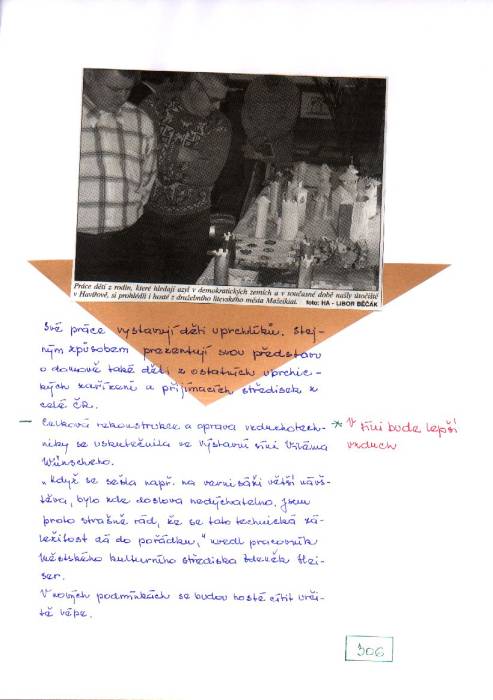 Práce dětí z rodin, které hledají azyl v demokratických zemích a v současné době našly útočiště
v Havířově, si prohlédli i hosté z družebního litevského města Mažeikiai. foto: HA - LIBOR BĚČÁK
Své práce vystavují děti uprchlíků. Stej-
ným způsobem prezentují svou představu
o domově také děti z ostatních uprchlic-
kých zařízení a přijímacích středisek z
celé ČR.
- Celková rekonstrukce a oprava vzduchotech-
niky se uskutečnila ve Výstavní síni Viléma
Wünscheho.
* V síni bude lepší
vzduch
„Když se sešla např. na vernisáži větší návš-
těva, bylo zde doslova nedýchatelno. Jsem
proto strašně rád, že se tato technická zá-
ležitost dá do pořádku,“ uvedl pracovník
Městského kulturního střediska Zdeněk Hei-
ser.
V nových podmínkách se budou hosté cítit urči-
tě lépe.
306